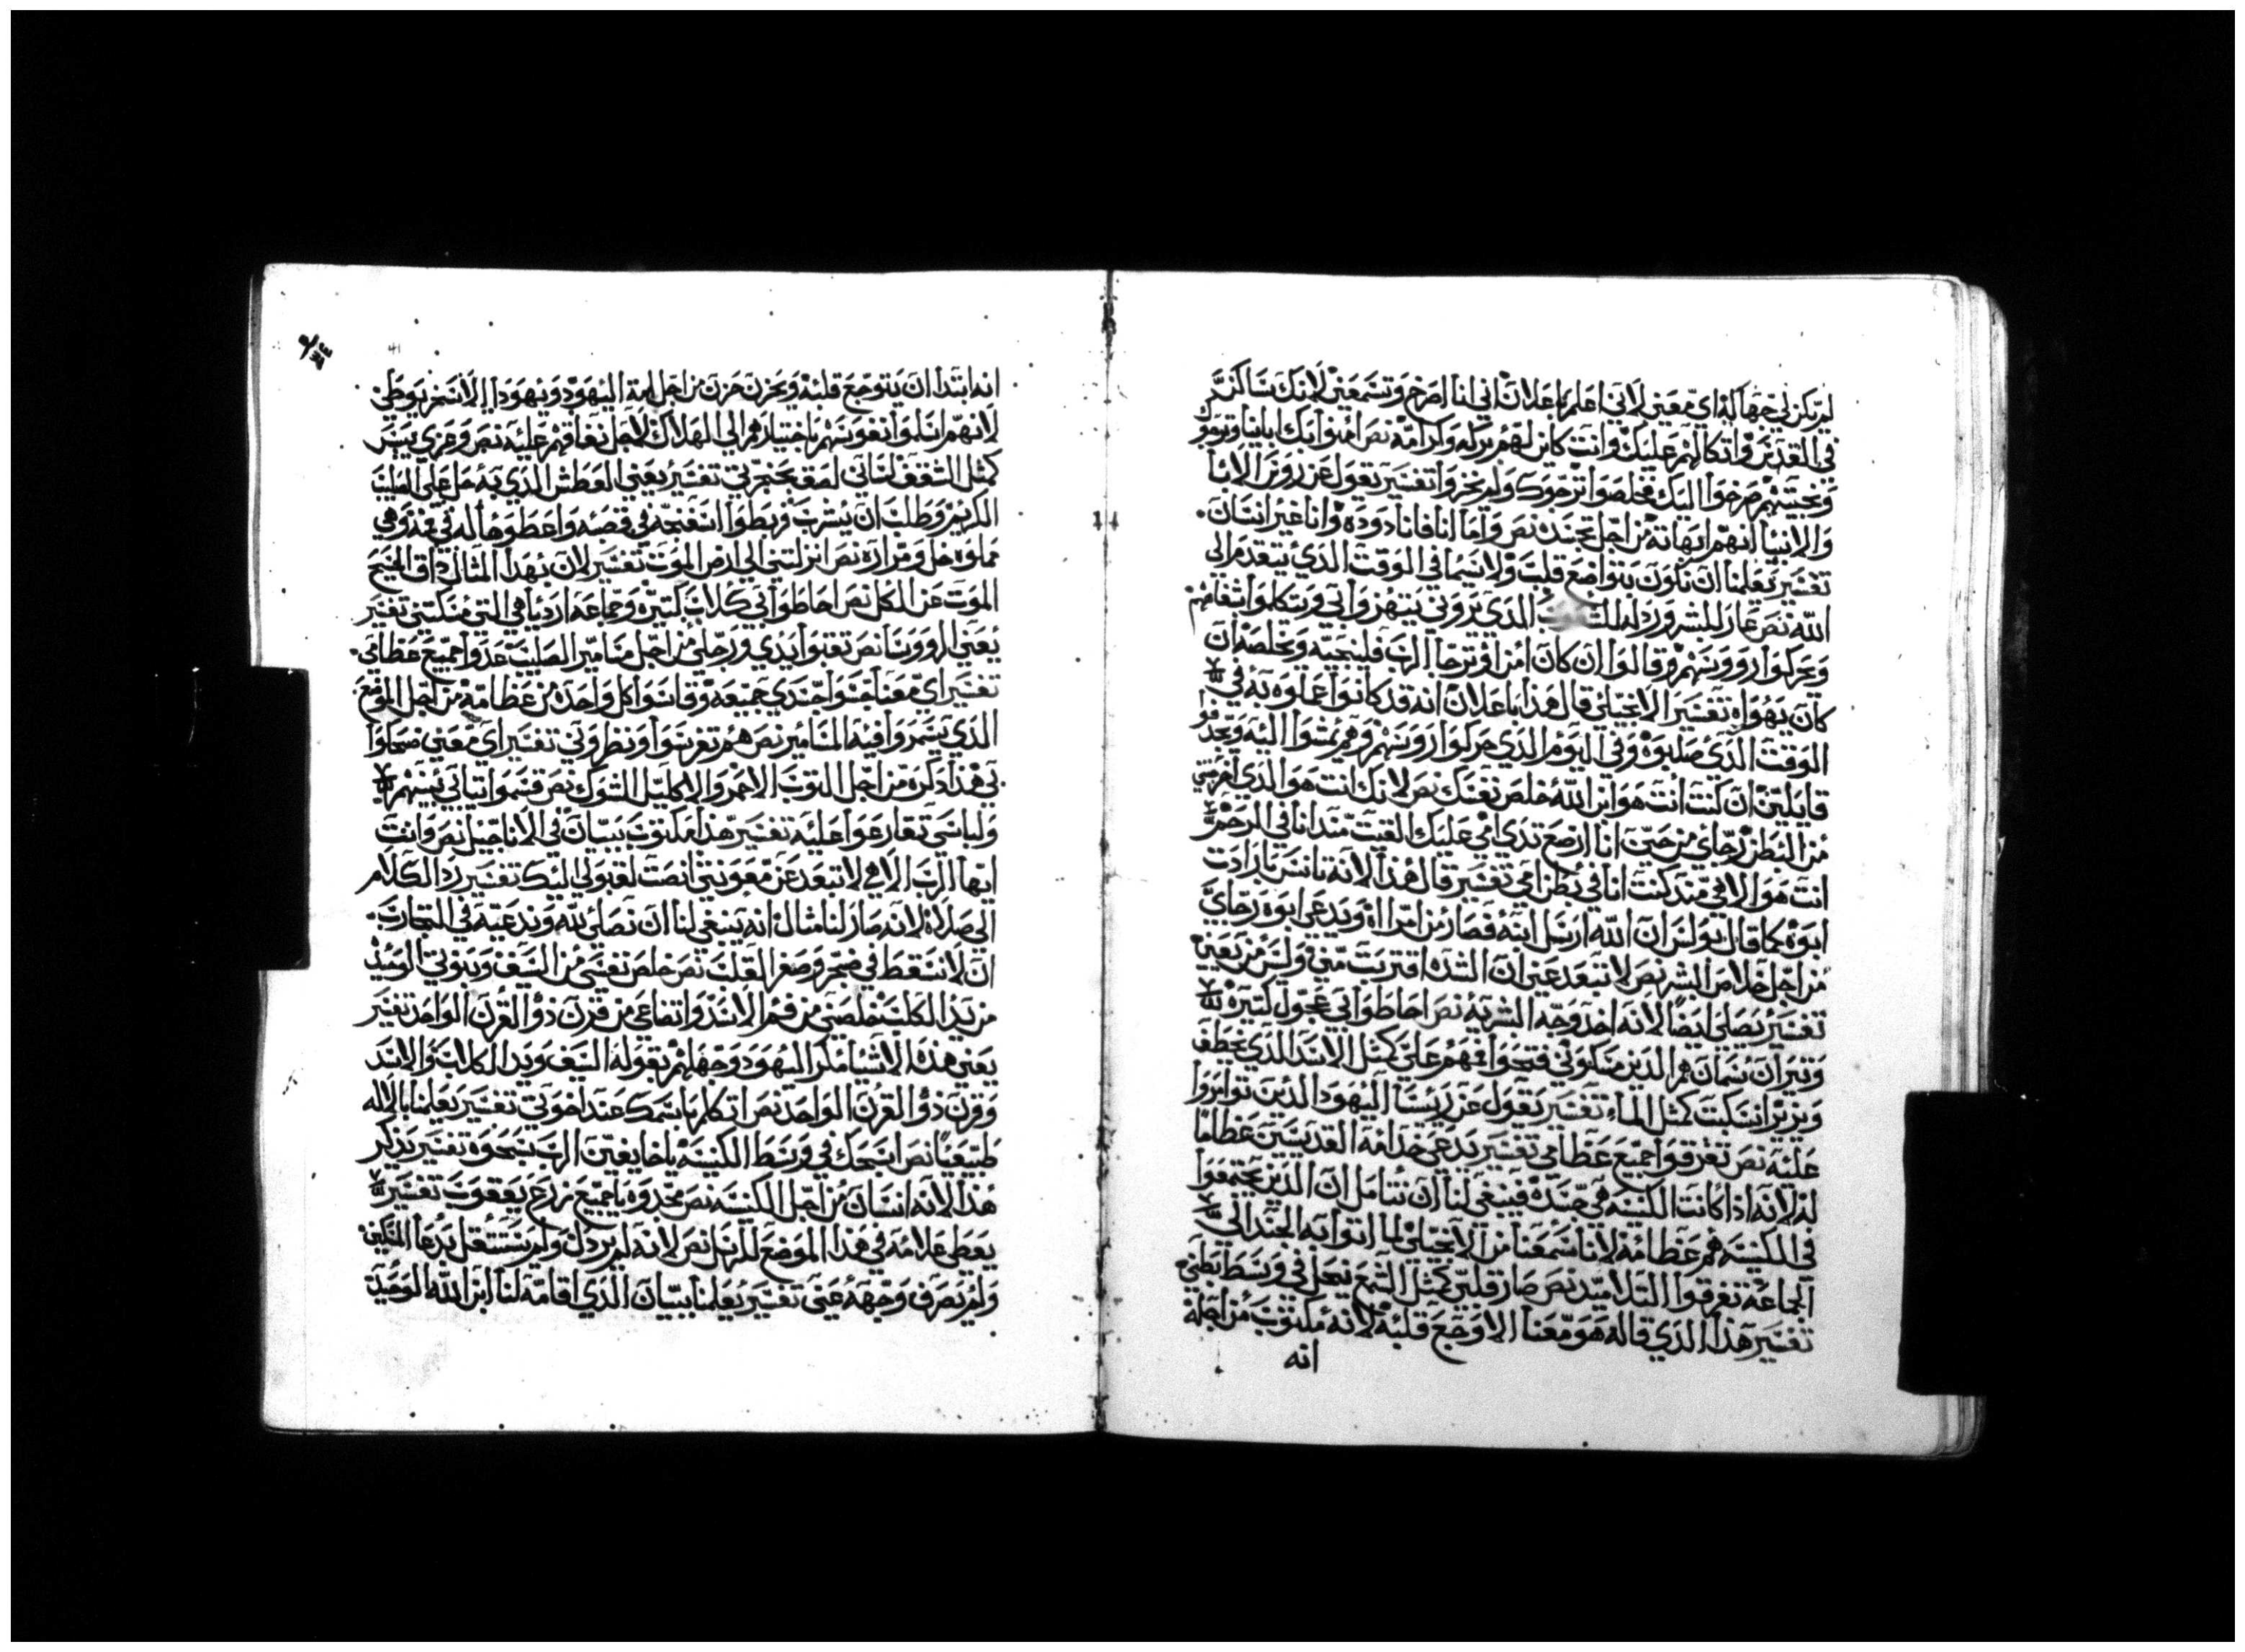 لم تكن لي جهاله اي معني لاني اعلم باعلان اني انا اصرخ وتسمعني لانك ساكن
في القديسين واتكالهم عليك وانت كاين لهم بركه وكرامه نص امنوا بك اباينا وترجوك
ونجيتهم صرخوا اليك فخلصوا ترجوك ولم يخزوا تفسير تقول عن روس الابا
والانبيا انهم ابهاته من اجل تجسده نص واما انا فانا دوده وانا غير انسان
تفسير يعلمنا ان نكون بتواضع قلب ولا سيما في الوقت الذي نتقدم الى
الله نص عار للبشر ورذله الذي يروني يتهزوا بي ويتكلموا بشفاههم
وحركوا روسهم وقالوا ان كان امن او ترجا الرب فلينجيه ويخلصه ان
كان يهواه تفسير الانجيلي قال هذا باعلان انه قد كانوا عملوه به في
الوقت الذي صلبوه وفي اليوم الذي حركوا روسهم وهم يمشوا اليه ويجدفوا
قايلين ان كنت انت هو ابن الله خلص نفسك نص لانك انت هو الذي اخرجتني
من البطن رجاي من حين انا ارضع ثدي امي عليك القيت منذ انا في الرحم
انت هو الاهي منذ كنت انا في بطن امي تفسير قال هذا لانه تانس بارادت
ابوه كما قال بولس ان الله ارسل ابنه فصار من امراه ويدعي ابوه رجاي
من اجل خلاص البشر نص لا تبعد عني ان الشده اقتربت مني وليس من يعين
تفسير يصلي ايضا لانه اخذ وجه البشريه نص احاطوا بي عجول كتيره
وتيران سمان هم الذين مسكوني فتحوا فمهم علي كمثل الاسد الذي يخطف
ويزير انسكبت كمثل الماء تفسير يقول عن ريسا اليهود الذين توامروا
عليه نص تفرقوا جميع عظامي تفسير يدعي خدامه القديسين عظاما
له لانه اذا كانت الكنيسه هي جسده فينبغي لنا ان نتامل ان الذين يجتمعوا
في الكنيسه هم عظامه لانا سمعنا من الانجيلي لما اتوا به الجند الى
الجماعه تفرقوا التلاميد نص صار قلبي كمثل الشمع ينحل في وسط بطني
تفسير هذا الذي قاله هو معنا الاوجع قلبه لانه مكتوب من اجله
انه
انه ابتدا ان يتوجع قلبه ويحزن حزن من اجل امة اليهود ويهودا الاسخريوطي
لانهم اسلموا نفوسهم باختيارهم الي الهلاك لاجل نفاقهم عليه نص وعزي يبس
كمثل الشقف لساني لصق بحنجرتي تفسير يعني العطش الذي به حل علي الصليب
الكريم وطلب ان يشرب وربطوا اسفنجه في قصبه واعطوها له في فمه وهي
مملوه خل ومراره نص انزلتني الي ارض الموت تفسير لان بهدا المثال داق المسيح
الموت عن الكل نص احاطوا بي كلاب كتيره وجماعه ارديا هي التي مسكتني تفسير
يعني الروسا نص تقبوا يدي ورجلي من اجل مسامير الصليب عدوا جميع عظامي
تفسير اي معنا جسوا جسدي جميعه وقاسوا كل واحده من عظامه من اجل الموضع
الذي يسمروا فيه المسامير نص هم تفرسوا ونظروني تفسير اي معني ضحكوا
بي هذا دكره من اجل التوب الاحمر والاكليل الشوك نص قسموا تيابي بينهم
ولباسي تقارعوا عليه تفسير هذا مكتوب ببيان في الاناجيل نص وانت
ايها الرب الاهي لا تبعد عن معونتي انصت لقبولي اليك تفسير رد الكلام
الي صلاه لانه صار لنا مثال انه ينبغي لنا ان نصلي لله وندعيه في التجارب
ان لا نسقط في ضجر وصغر القلب نص خلص نفسي من السيف وبنوتي الوحيده
من يد الكلب خلصني من فم الاسد واتضاعي من قرن ذو القرن الواحد تفسير
يعني هذه الاشيا مكر اليهود وجهلهم بقوله السيف ويد الكلاب والاسد
وقرن ذو القرن الواحد نص اتكلم باسمك عند اخوتي تفسير يعلمنا بالاله
طبيعيا نص اسبحك في وسط الكنيسه يا خايفين الرب سبحوه تفسير يذكر
هذا لانه انسان من اجل الكنيسه نص مجدوه يا جميع زرع يعقوب تفسير
يعطي علامه في هذا الموضع للرسل نص لانه لم يردل ولم يستتقل بدعا المسكين
ولم يصرف وجهه عني تفسير يعلمنا ببيان الذي اقامه لنا ابن الله الوحيد